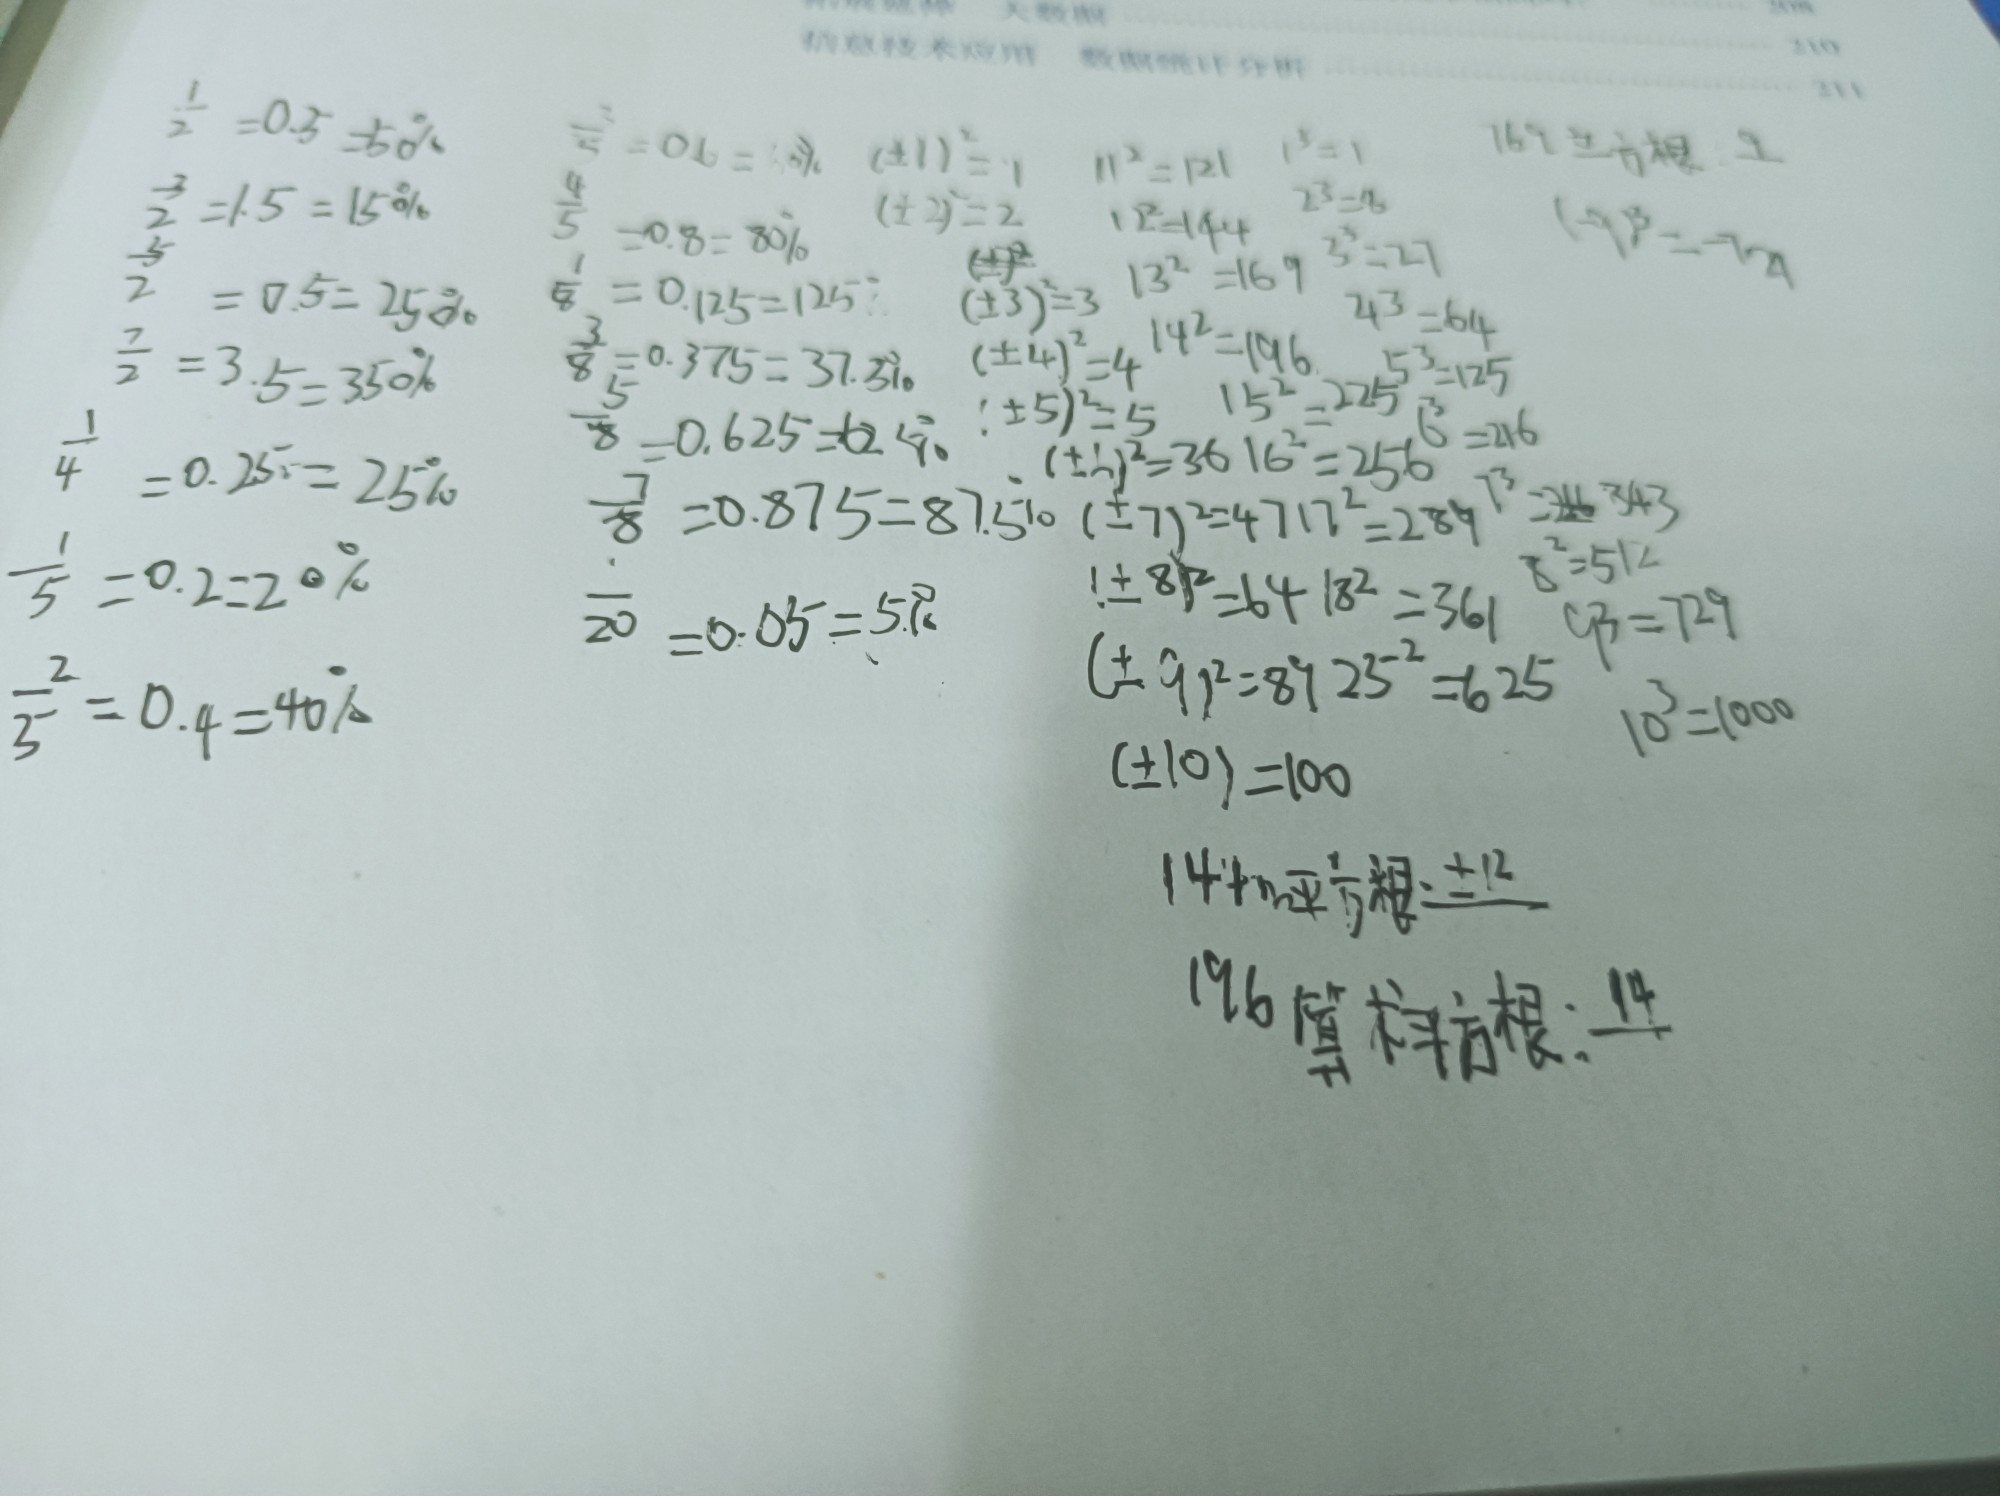 大数据
210
信息技术应用 数据统计分析 211
1/2 =0.5=50%
3/2 =1.5=15%
5/2 =0.5=25%
7/2 =3.5=350%
1/4 =0.25=25%
1/5 =0.2=20%
2/5 =0.4=40%
4/5 =0.8=80%
1/8 =0.125=125
3/8 =0.375=37.5%
5/8 =0.625=62.5%
7/8 =0.875=87.5%
20 =0.05=5%
(±1)²=1
(±2)²=2
(±3)²=3
(±4)²=4
(±5)²=5
(±6)²=36
(±7)²=47
(±8)²=64
(±9)²=89
(±10)=100
11²=121
12²=144
13²=169
14²=196
15²=225
16²=256
17²=289
18²=361
25²=625
1³=1
2³=8
3³=27
4³=64
5³=125
6³=216
7³=343
8²=512
9³=729
10³=1000
平方根:±12
196算术平方根:14